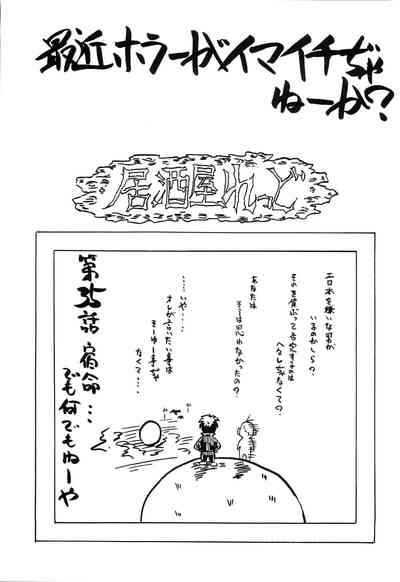 最近ホラーがイマイチぢゃ
ねーか?
居酒屋れっど
エロ本を嫌いな男が
いるのかしら?
それを偉ぶって否定するのは
へなしぢゃなくて?
あなたは
そーは思わなかったの?
…いや…
オレが言いたい事は
そーゆー事ぢゃ
なくて…
第35話 宿命…
でも何でもねーや